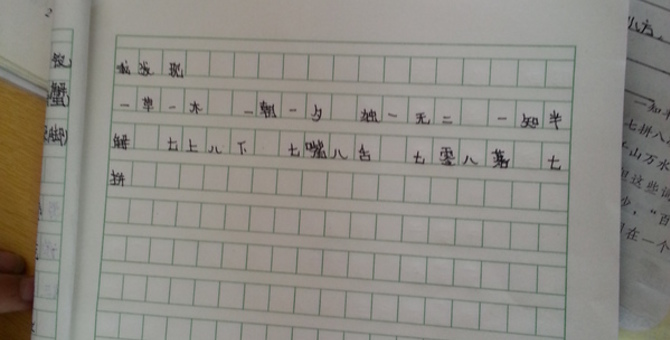 我发现
一草一木 一朝一夕 独一无二 一知半
解 七上八下 七嘴八舌 七零八落 七
拼
蟹
小方
一知半
七拼八
山万水
这些词
少，“百
在一个